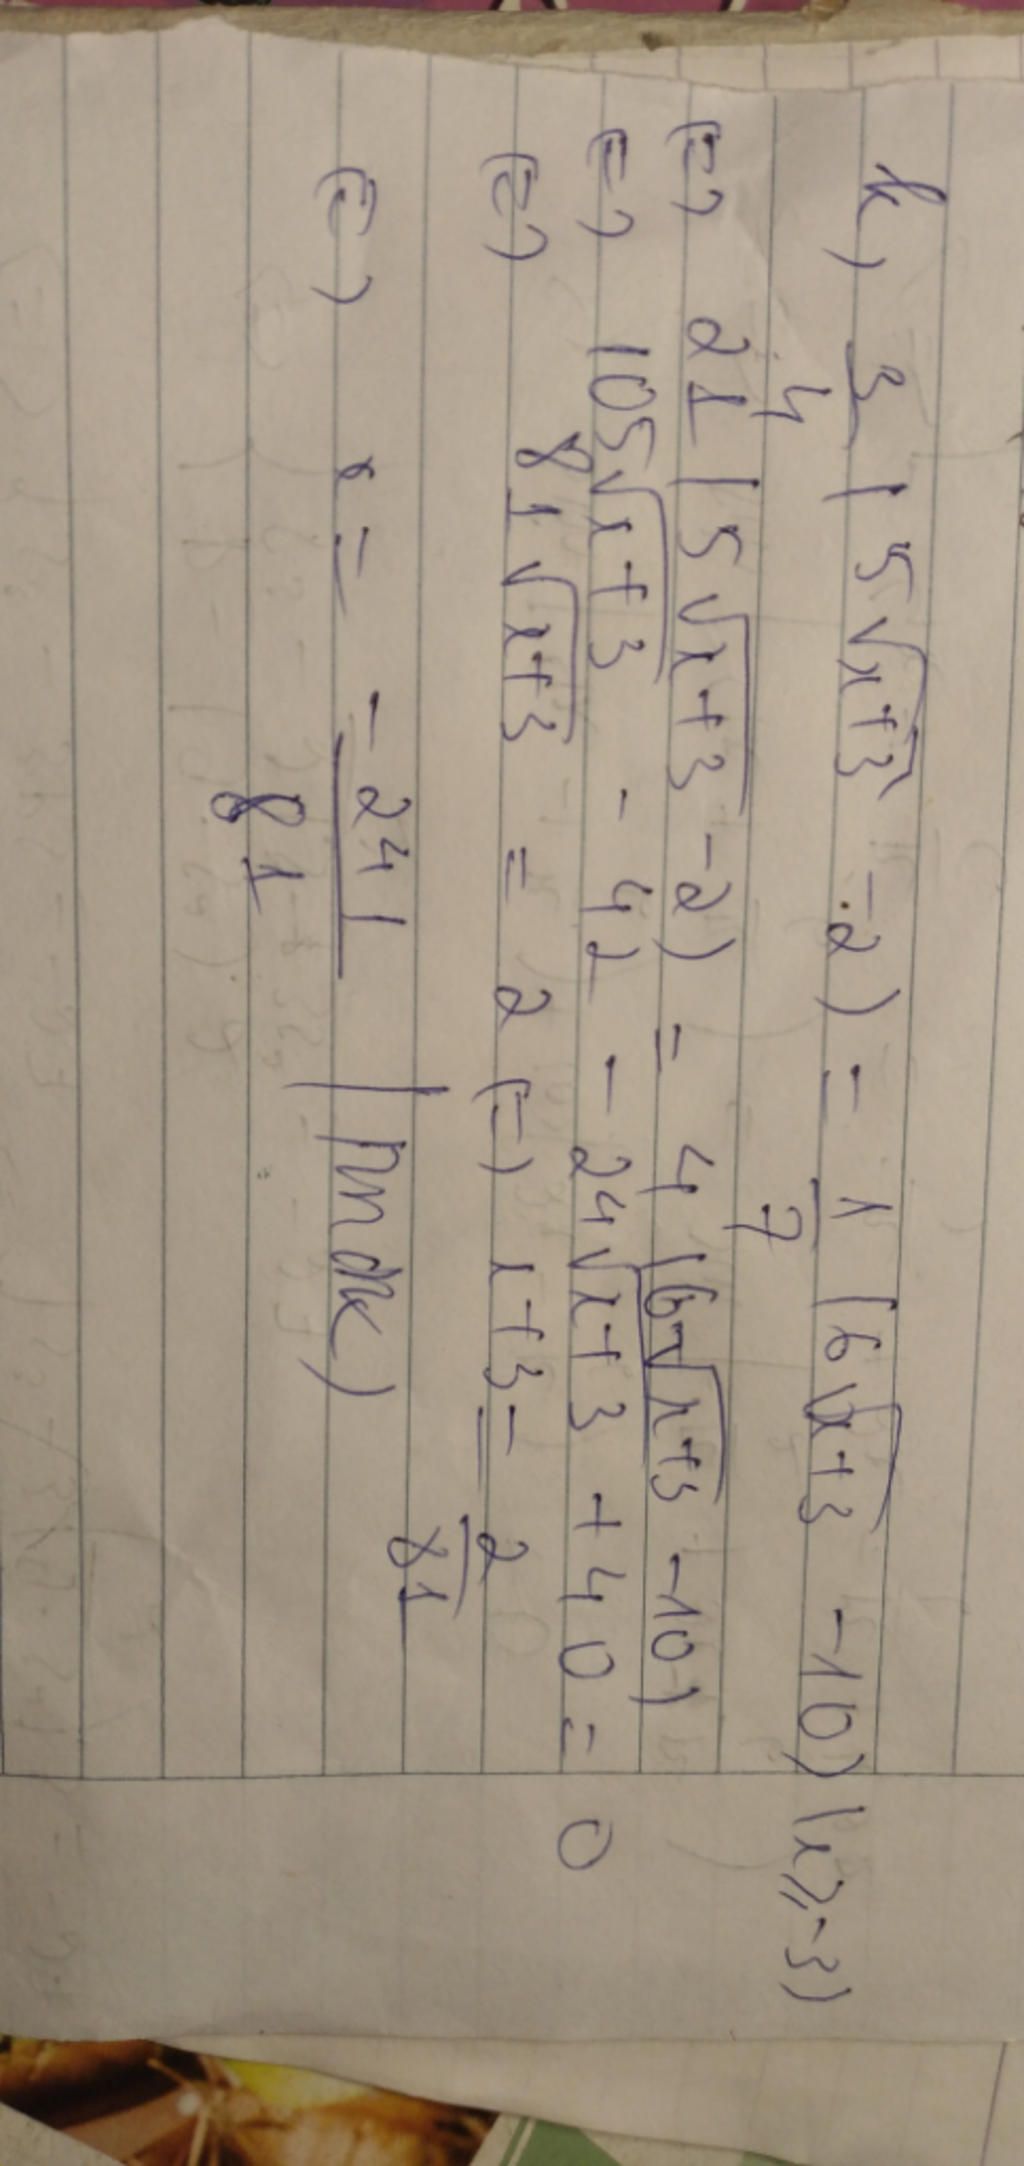 k) 3/4 (5√x+3 -2) = 1/7 (6√x+3 -10) (x≥-3)
(=) 21(5√x+3 -2) = 4(6√x+3 -10)
(=) 105√x+3 - 42 - 24√x+3 + 40 = 0
(=) 81√x+3 = 2 (=) x+3 = 2/81
(=) x = -241/81 (tmđk)